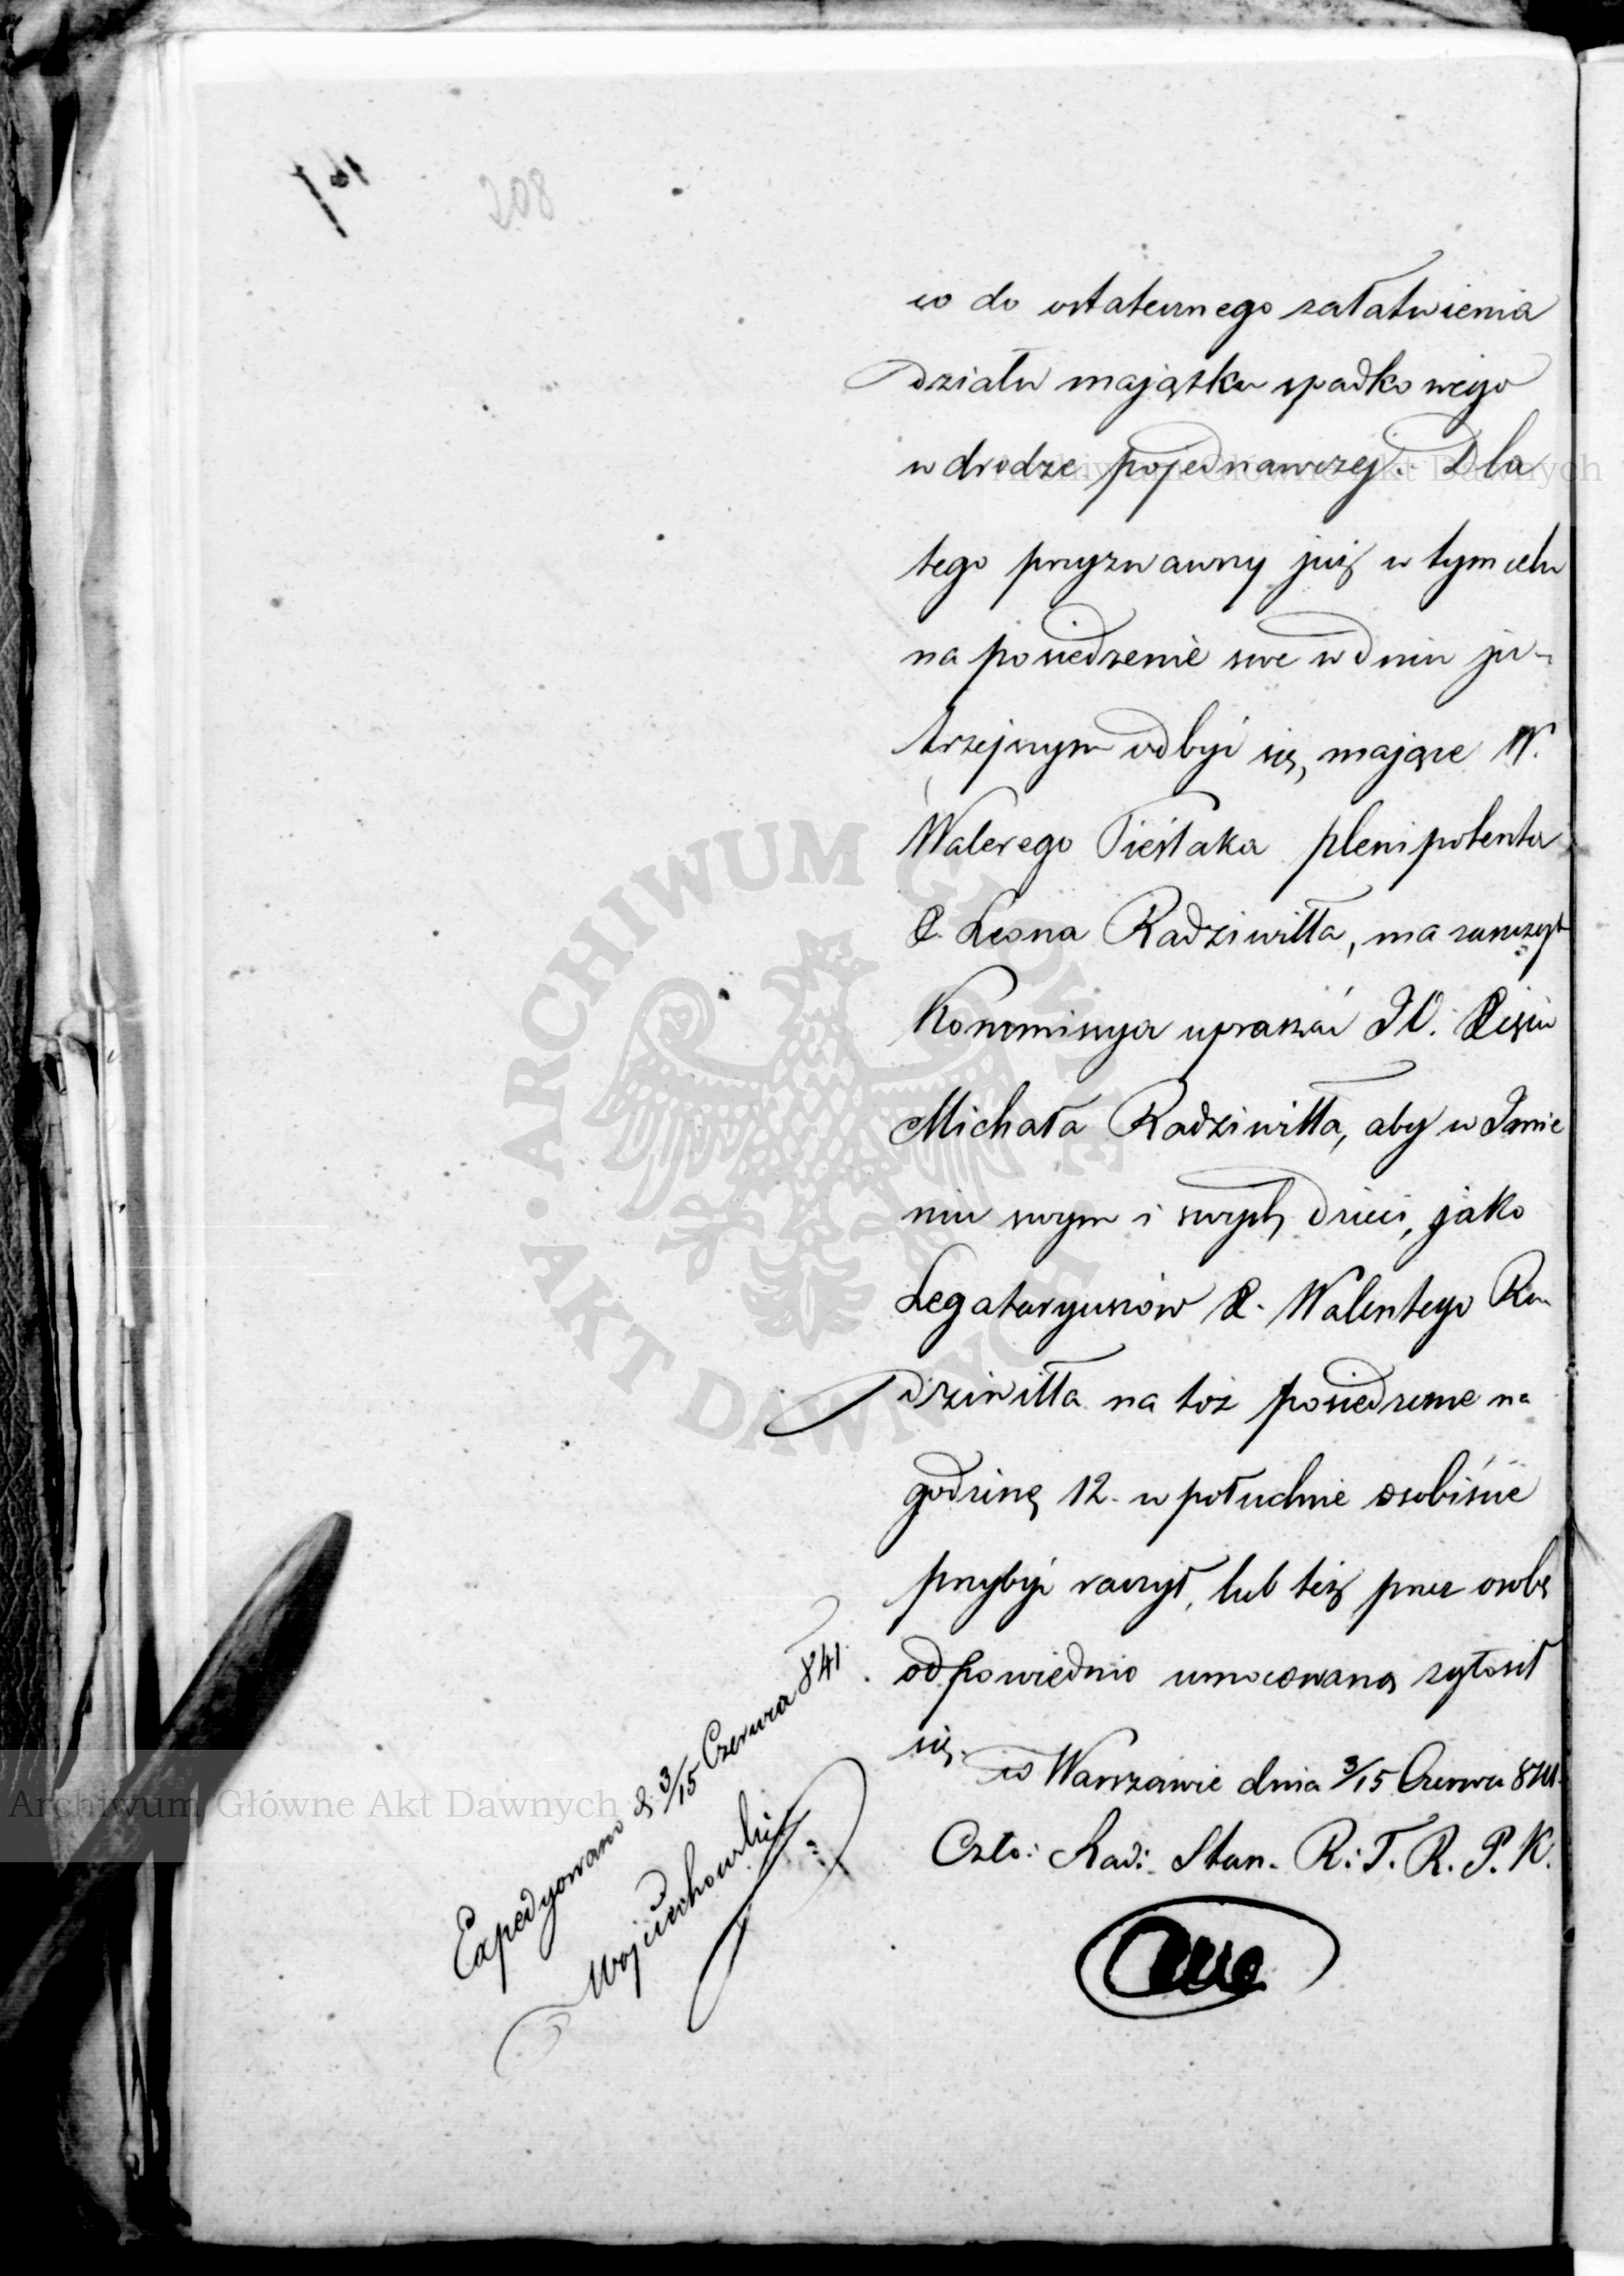 208
co do ostatecznego załatwienia
działu majątku spadkowego
w drodze pojednawczej. Dla
tego przyzwawszy już w tym celu
na posiedzenie swe w dniu ju-
trzejszym odbyć się mające W.
Walerego Cieślaka plenipotenta
X. Leona Radziwiłła, ma zaszczyt
Kommissya upraszać JO. Xięcia
Michała Radziwiłła, aby w Imie
niu swym i swych dzieci, jako
Legataryuszów X. Walentego Ra-
dziwiłła na toż posiedzenie na
godzinę 12. w południe osobiście
przybyć raczył, lub też przez osobę
odpowiednio umocowaną zgłosił
się.
w Warszawie dnia 3/15 Czerwca 841.
Czło: Rad: Stan. R: T. R. P. K.
Expedyowano d. 3/15 Czerwca 841.
Wojciechowski
Archiwum Główne Akt Dawnych
ARCHIWUM GŁÓWNE
AKT DAWNYCH
Archiwum Główne Akt Dawnych